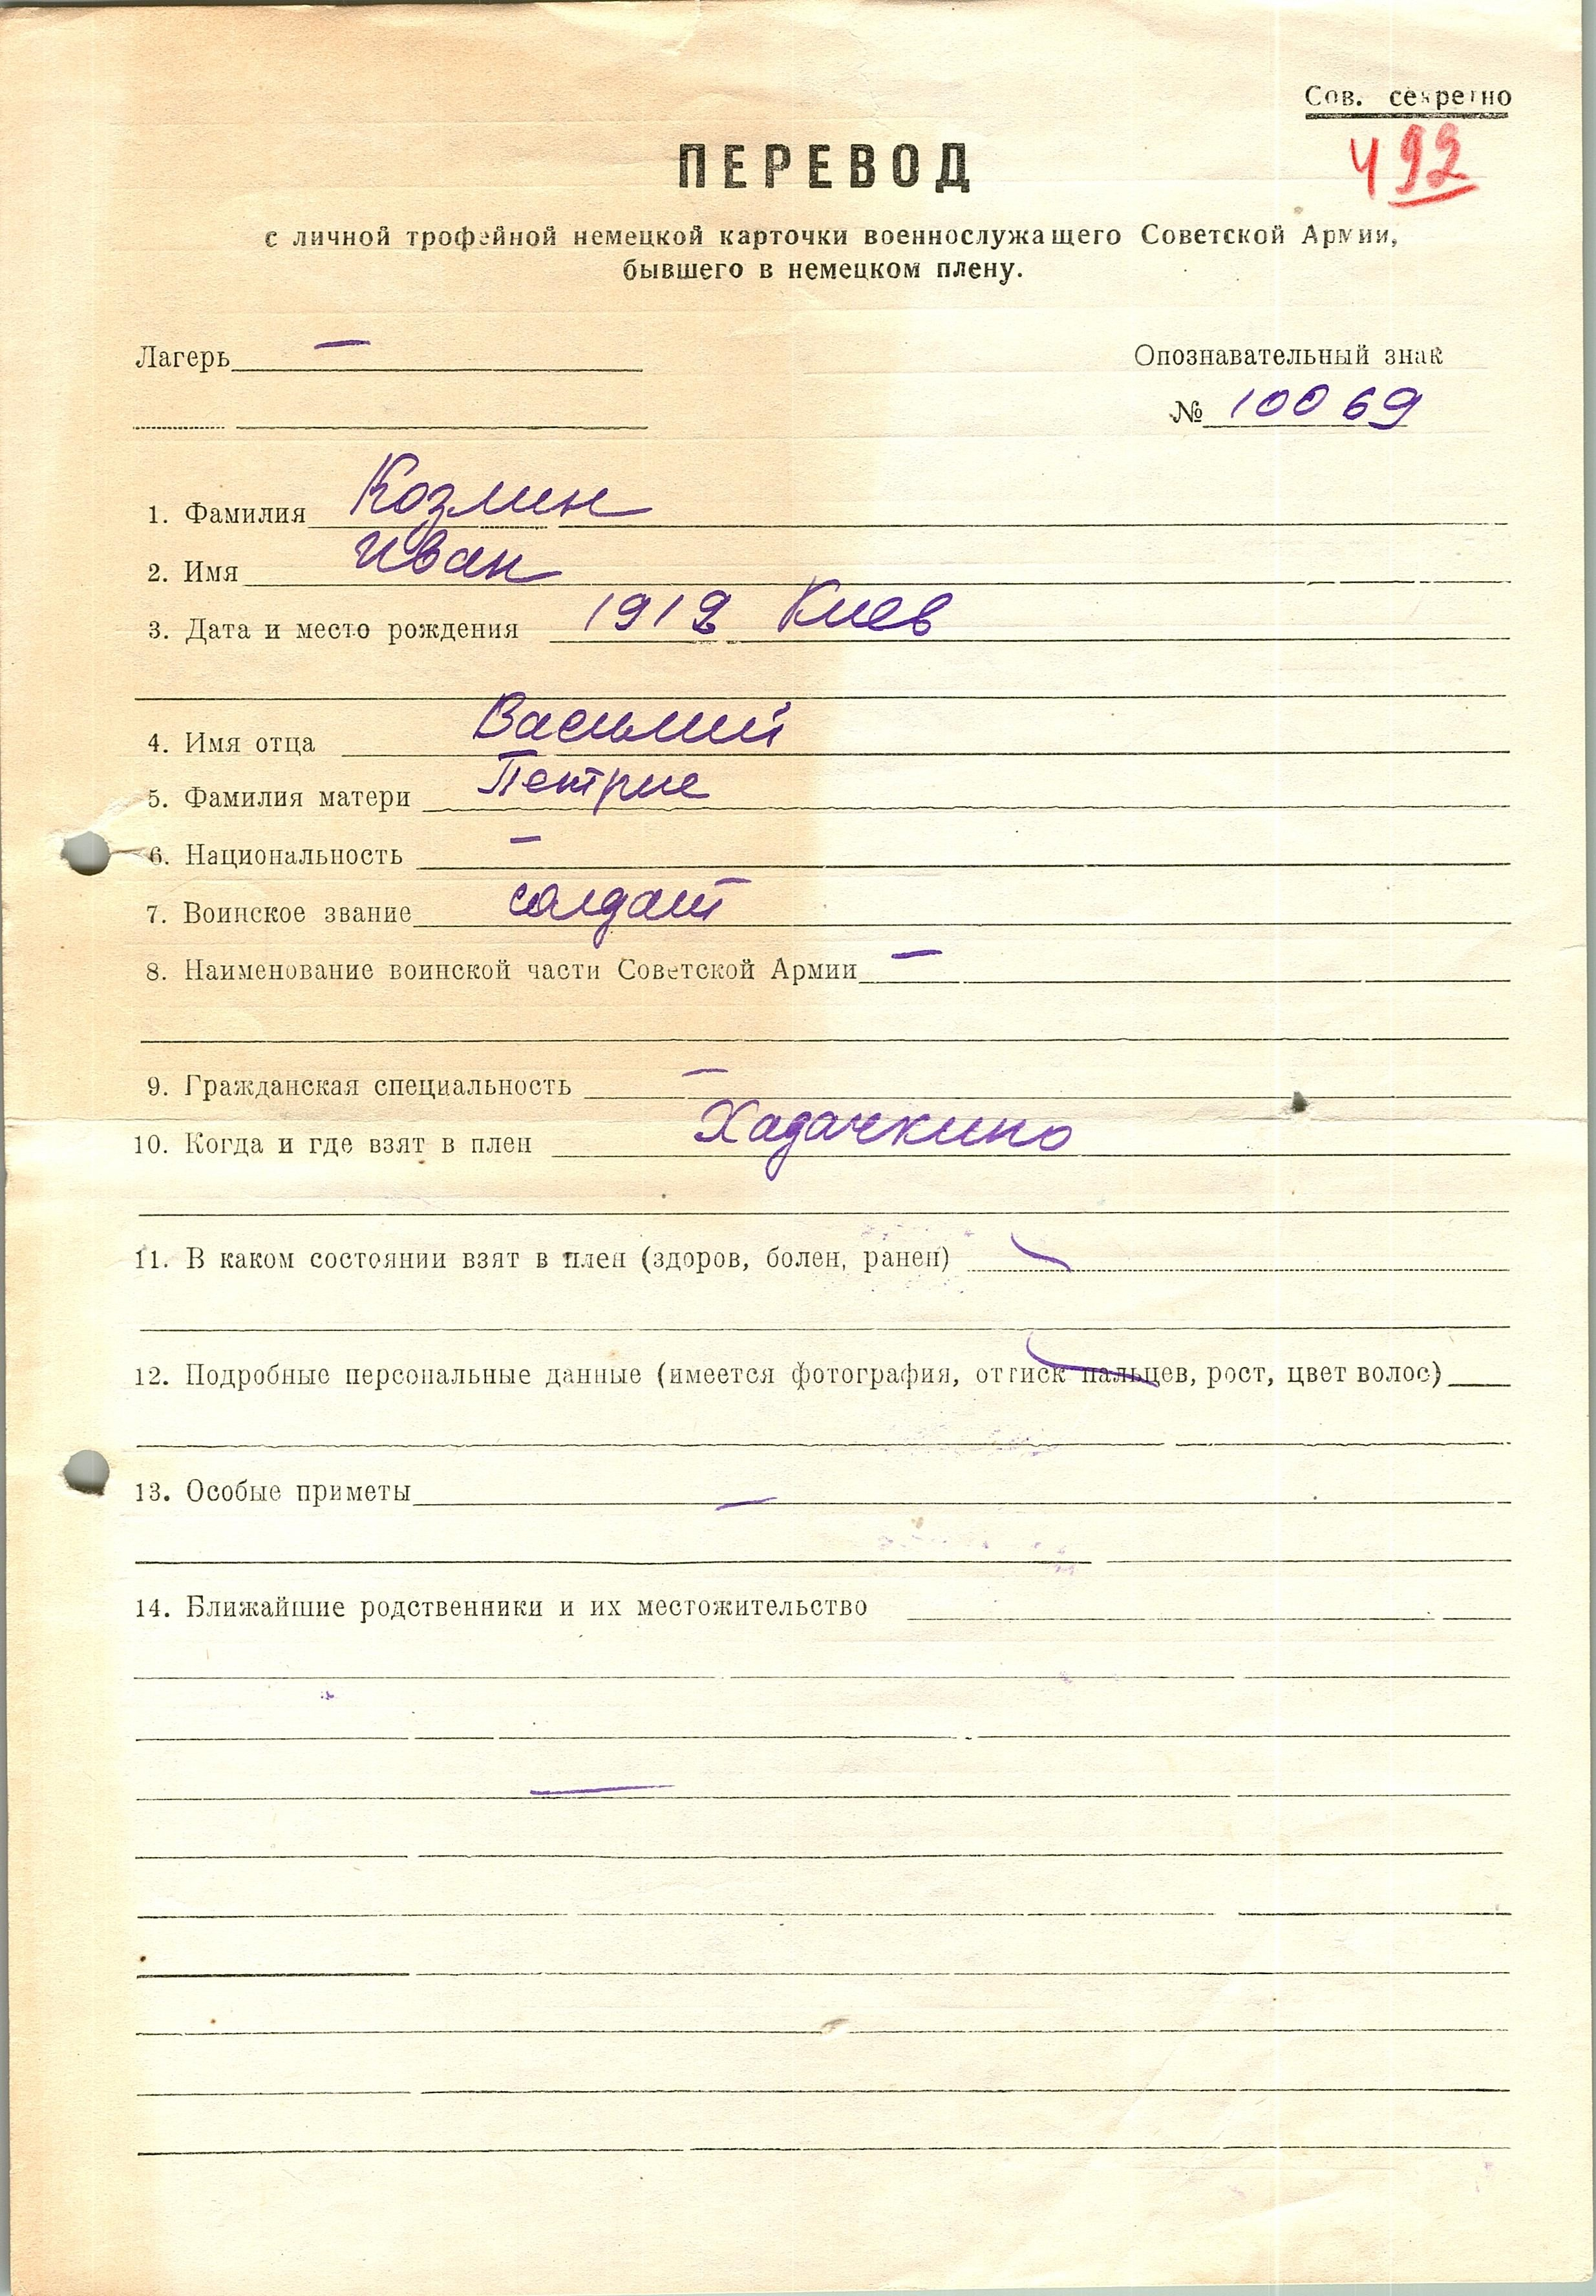 Сов. секретно
492
ПЕРЕВОД
с личной трофейной немецкой карточки военнослужащего Советской Армии,
бывшего в немецком плену.
Лагерь —
Опознавательный знак
№ 10069
1. Фамилия Козлин
2. Имя Иван
3. Дата и место рождения 1912 Киев
4. Имя отца Василий
5. Фамилия матери Петрие
6. Национальность —
7. Воинское звание солдат
8. Наименование воинской части Советской Армии —
9. Гражданская специальность —
10. Когда и где взят в плен Хадачкино
11. В каком состоянии взят в плен (здоров, болен, ранен)
12. Подробные персональные данные (имеется фотография, оттиск пальцев, рост, цвет волос)
13. Особые приметы —
14. Ближайшие родственники и их местожительство
—